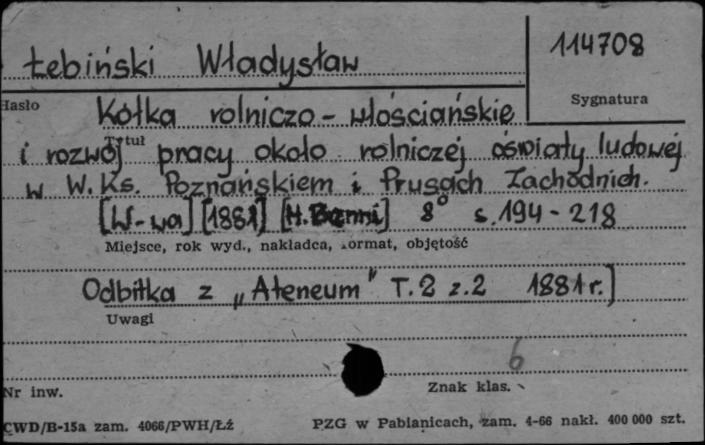 Łebiński Władysław
114708
Hasło
Sygnatura
Kółka rolniczo-włościańskie
Tytuł
i rozwój pracy około rolniczej oświaty ludowej
w W. Ks. Poznańskiem i Prusach Zachodnich.
[W-wa] [1881] [H. Benni] 8° s. 194-218
Miejsce, rok wyd., nakładca, format, objętość
Odbitka z „Ateneum" T. 2 z. 2 1881 r.]
Uwagi
6
Nr inw.
Znak klas.
CWD/B-15a zam. 4066/PWH/Łź
PZG w Pabianicach, zam. 4-66 nakł. 400 000 szt.